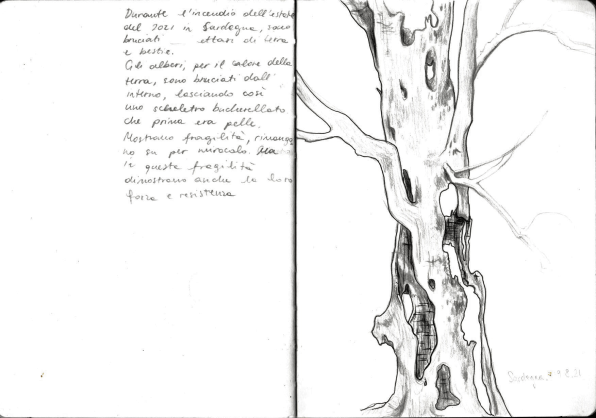 Durante l'incendio dell'estate
del 2021 in Sardegna, sono
bruciati ___ ettari di terra
e bestie.
Gli alberi, per il calore della
terra, sono bruciati dall'
interno, lasciando così
uno scheletro bucherellato
che prima era pelle.
Mostrano fragilità, rimango
no su per miracolo. Ma
in queste fragilità
dimostrano anche la loro
forza e resistenza
8.21